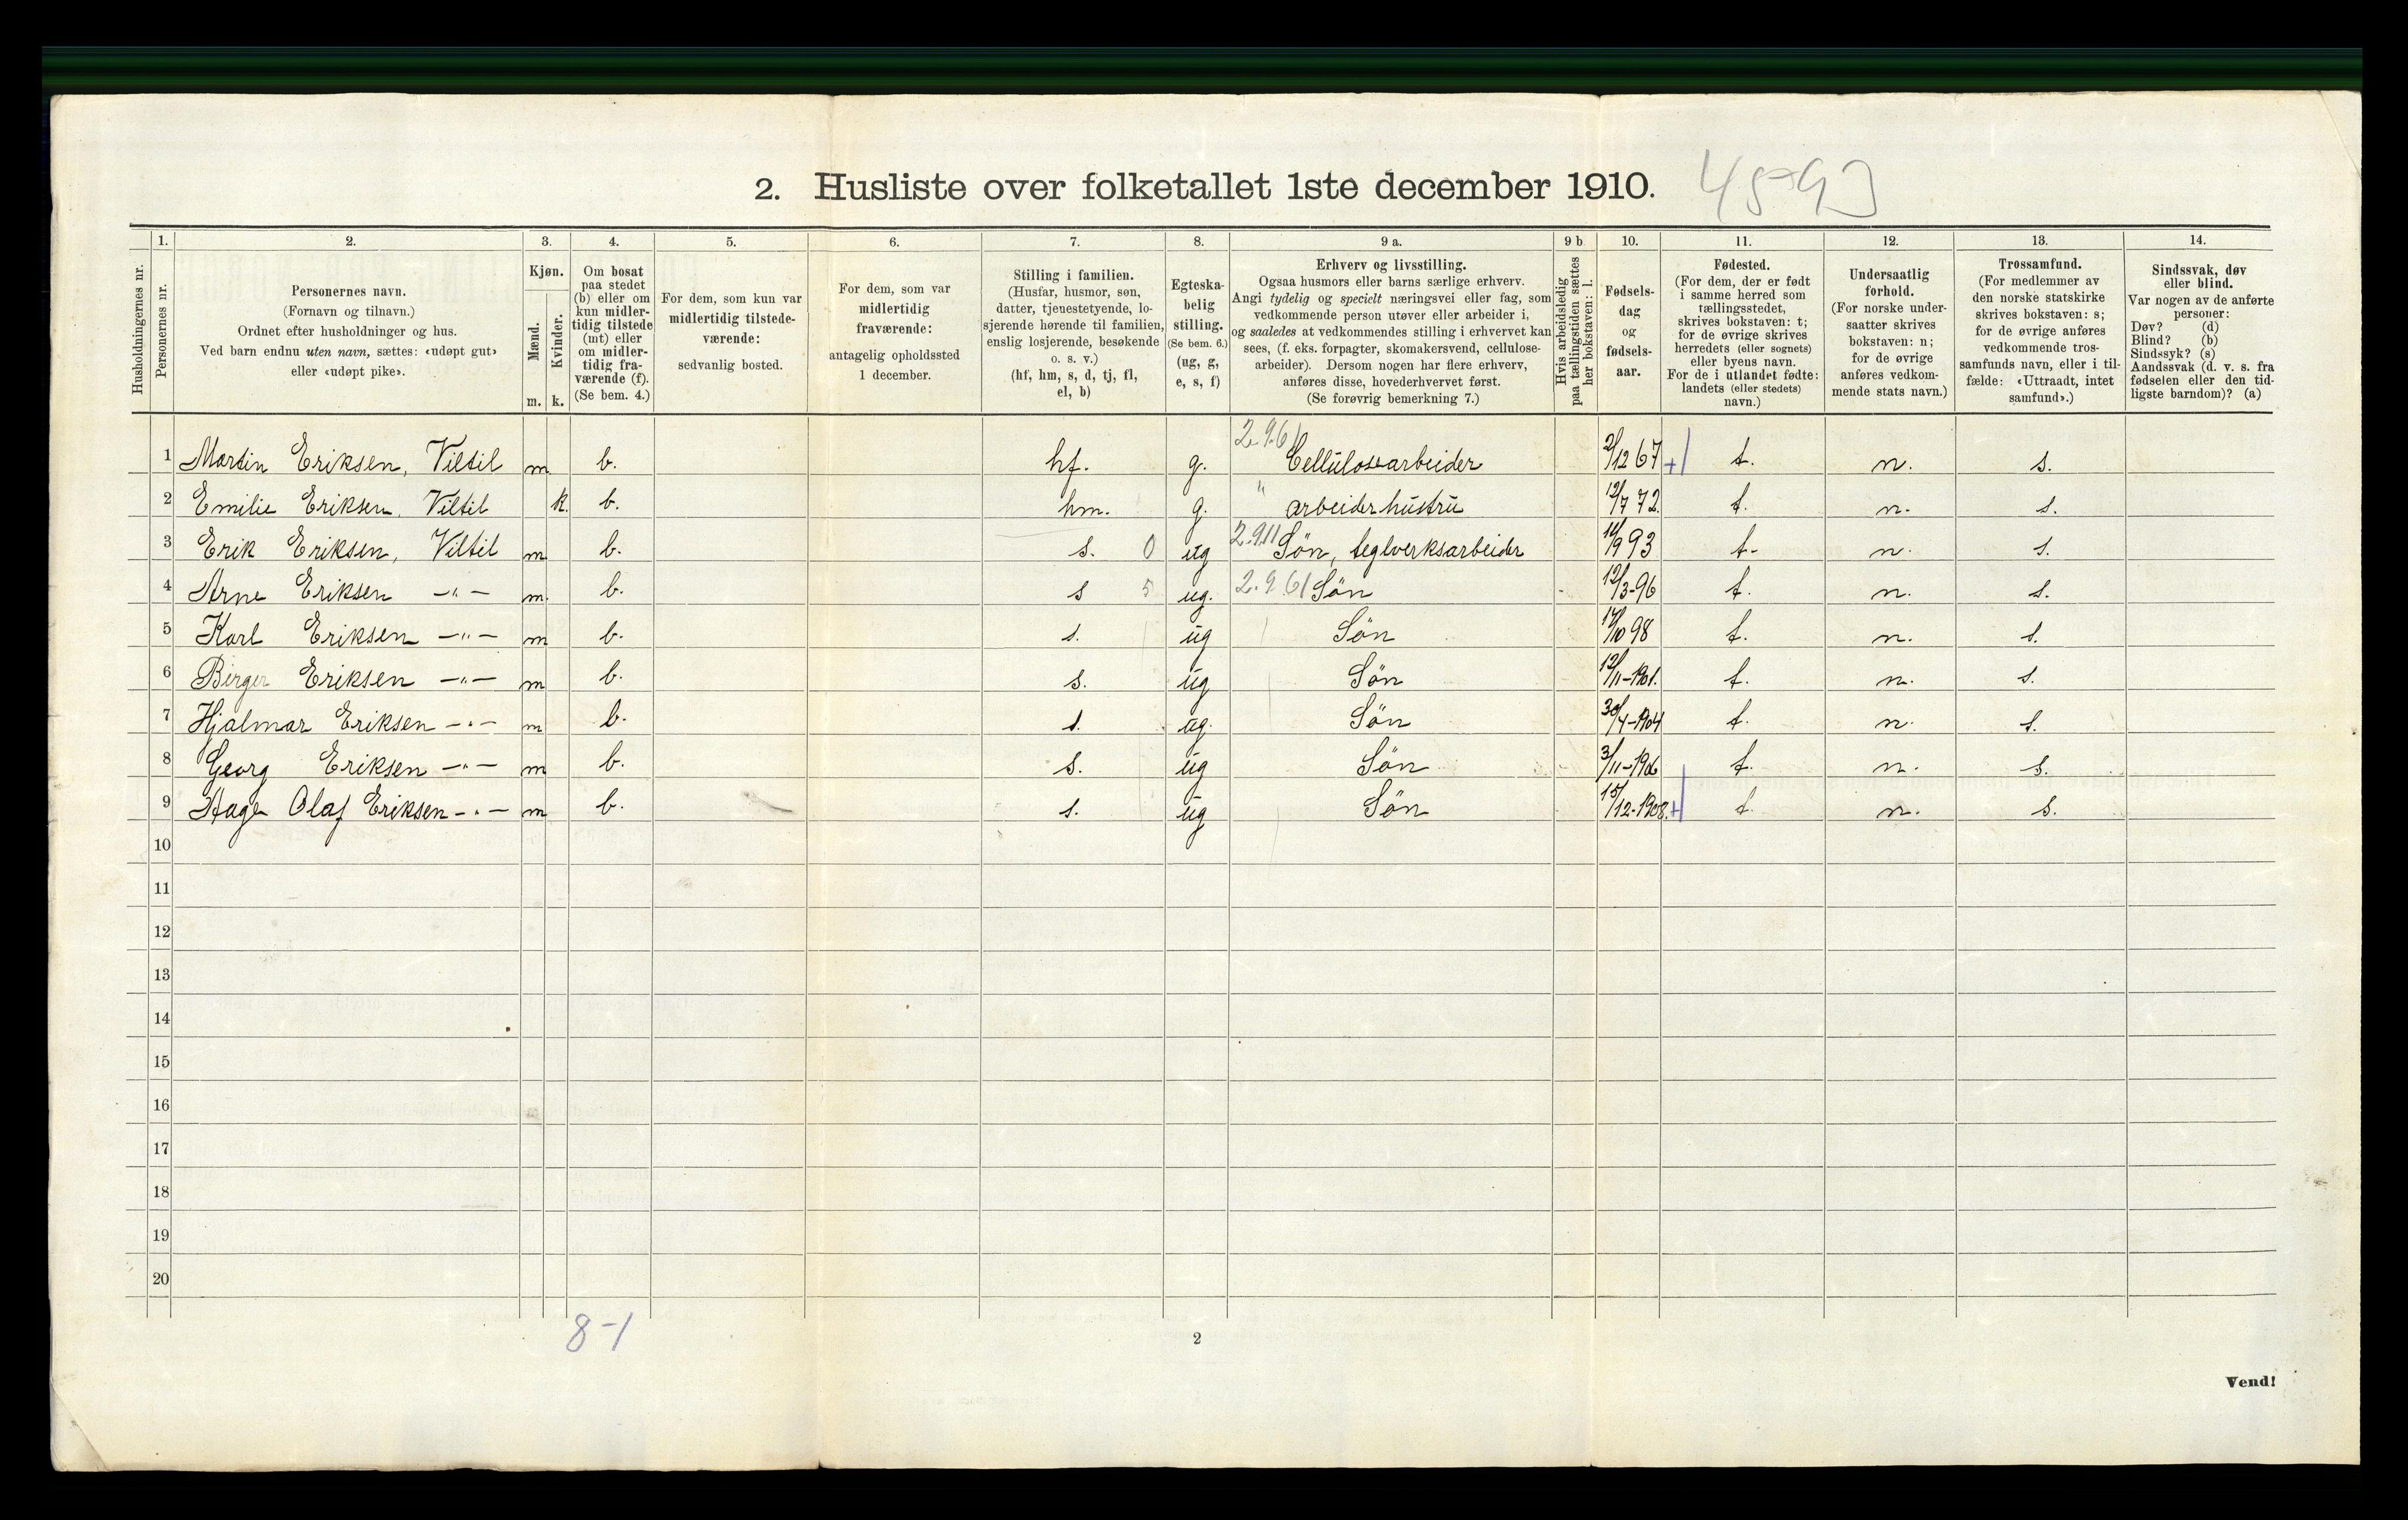 2. Husliste over folketallet 1ste december 1910. 45-93
Husholdningernes nr.
1.
Personernes nr.
2.
Personernes navn.
(Fornavn og tilnavn.)
Ordnet efter husholdninger og hus.
Ved barn endnu uten navn, sættes: «udøpt gut»
eller «udøpt pike».
3.
Kjøn.
Mænd.
Kvinder.
m. k.
4.
Om bosat
paa stedet
(b) eller om
kun midler-
tidig tilstede
(mt) eller
om midler-
tidig fra-
værende (f).
(Se bem. 4.)
5.
For dem, som kun var
midlertidig tilstede-
værende:
sedvanlig bosted.
6.
For dem, som var
midlertidig
fraværende:
antagelig opholdssted
1 december.
7.
Stilling i familien.
(Husfar, husmor, søn,
datter, tjenestetyende, lo-
sjerende hørende til familien,
enslig losjerende, besøkende
o. s. v.)
(hf, hm, s, d, tj, fl,
el, b)
8.
Egteska-
belig
stilling.
(Se bem. 6.)
(ug, g,
e, s, f)
9 a.
Erhverv og livsstilling.
Ogsaa husmors eller barns særlige erhverv.
Angi tydelig og specielt næringsvei eller fag, som
vedkommende person utøver eller arbeider i,
og saaledes at vedkommendes stilling i erhvervet kan
sees, (f. eks. forpagter, skomakersvend, cellulose-
arbeider). Dersom nogen har flere erhverv,
anføres disse, hovederhvervet først.
(Se forøvrig bemerkning 7.)
9 b
Hvis arbeidsledig
paa tællingstiden sættes
her bokstaven: l.
10.
Fødsels-
dag
og
fødsels-
aar.
11.
Fødested.
(For dem, der er født
i samme herred som
tællingsstedet,
skrives bokstaven: t;
for de øvrige skrives
herredets (eller sognets)
eller byens navn.
For de i utlandet fødte:
landets (eller stedets)
navn.)
12.
Undersaatlig
forhold.
(For norske under-
saatter skrives
bokstaven: n;
for de øvrige
anføres vedkom-
mende stats navn.)
13.
Trossamfund.
(For medlemmer av
den norske statskirke
skrives bokstaven: s;
for de øvrige anføres
vedkommende tros-
samfunds navn, eller i til-
fælde: «Uttraadt, intet
samfund».)
14.
Sindssvak, døv
eller blind.
Var nogen av de anførte
personer:
Døv? (d)
Blind? (b)
Sindssyk? (s)
Aandssvak (d. v. s. fra
fødselen eller den tid-
ligste barndom)? (a)
2.9.61
1 Martin Eriksen, Viltil m. b. hf. g. Cellulosearbeider 2/12 67 + t. n. s.
2 Emilie Eriksen, Viltil k. b. hm. g. " arbeiderhustru 12/7 72. t. n. s.
3 Erik Eriksen, Viltil m b. s. 0 ug 2.911 Søn, teglverksarbeider 14/9 93 t. n. s.
4 Arne Eriksen -"- m. b. s 5 ug. 2.9.61 Søn 12/3-96 t. n. s.
5 Karl Eriksen -"- m b. s. ug Søn 14/10 98 t. n. s.
6 Birger Eriksen -"- m b. s. ug Søn 12/11-1901. t. n. s.
7 Hjalmar Eriksen -"- m b. s. ug. Søn 30/4-1904 t. n. s.
8 Georg Eriksen -"- m b. s. ug Søn 3/11-1906 t. n. s.
9 Aage Olaf Eriksen -"- m b. s. ug Søn 15/12-1908. + t. n. s.
10
11
12
13
14
15
16
17
18
19
20
8-1
2
Vend!